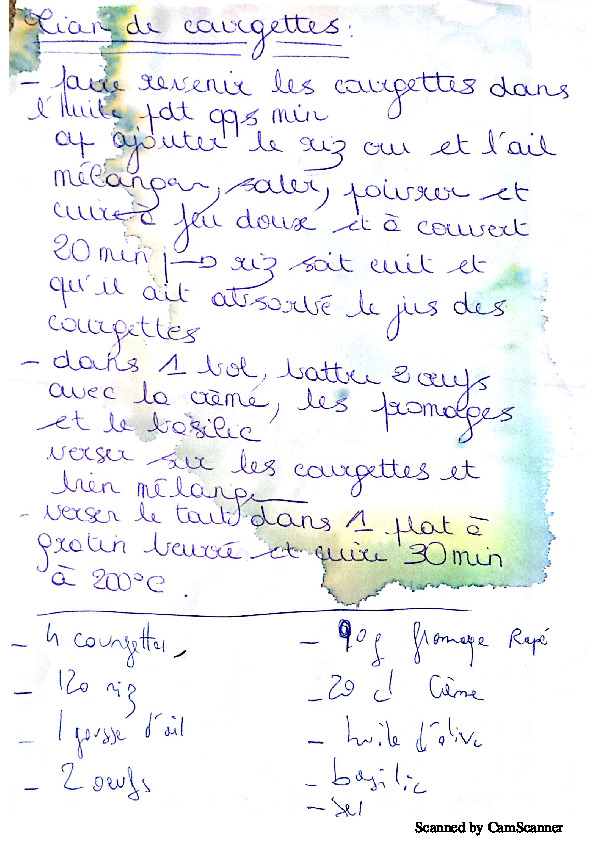 Tian de courgettes:
- faire revenir les courgettes dans
l'huile pdt qqs min
ap ajouter le riz cru et l'ail
mélanger, saler, poivrer et
cuire à feu doux et à couvert
20 min j → riz soit cuit et
qu'il ait absorbé le jus des
courgettes
- dans 1 bol, battre 2 œufs
avec la crème, les fromages
et le basilic
verser sur les courgettes et
bien mélanger
- verser le tout dans 1 plat à
gratin beurré et cuire 30 min
à 200°C.
- 4 courgettes,
- 120 riz
- 1 gousse d'ail
- 2 oeufs
- 90g fromage Rapé
- 20 cl Crème
- huile d'olive
- basilic
- sel
Scanned by CamScanner